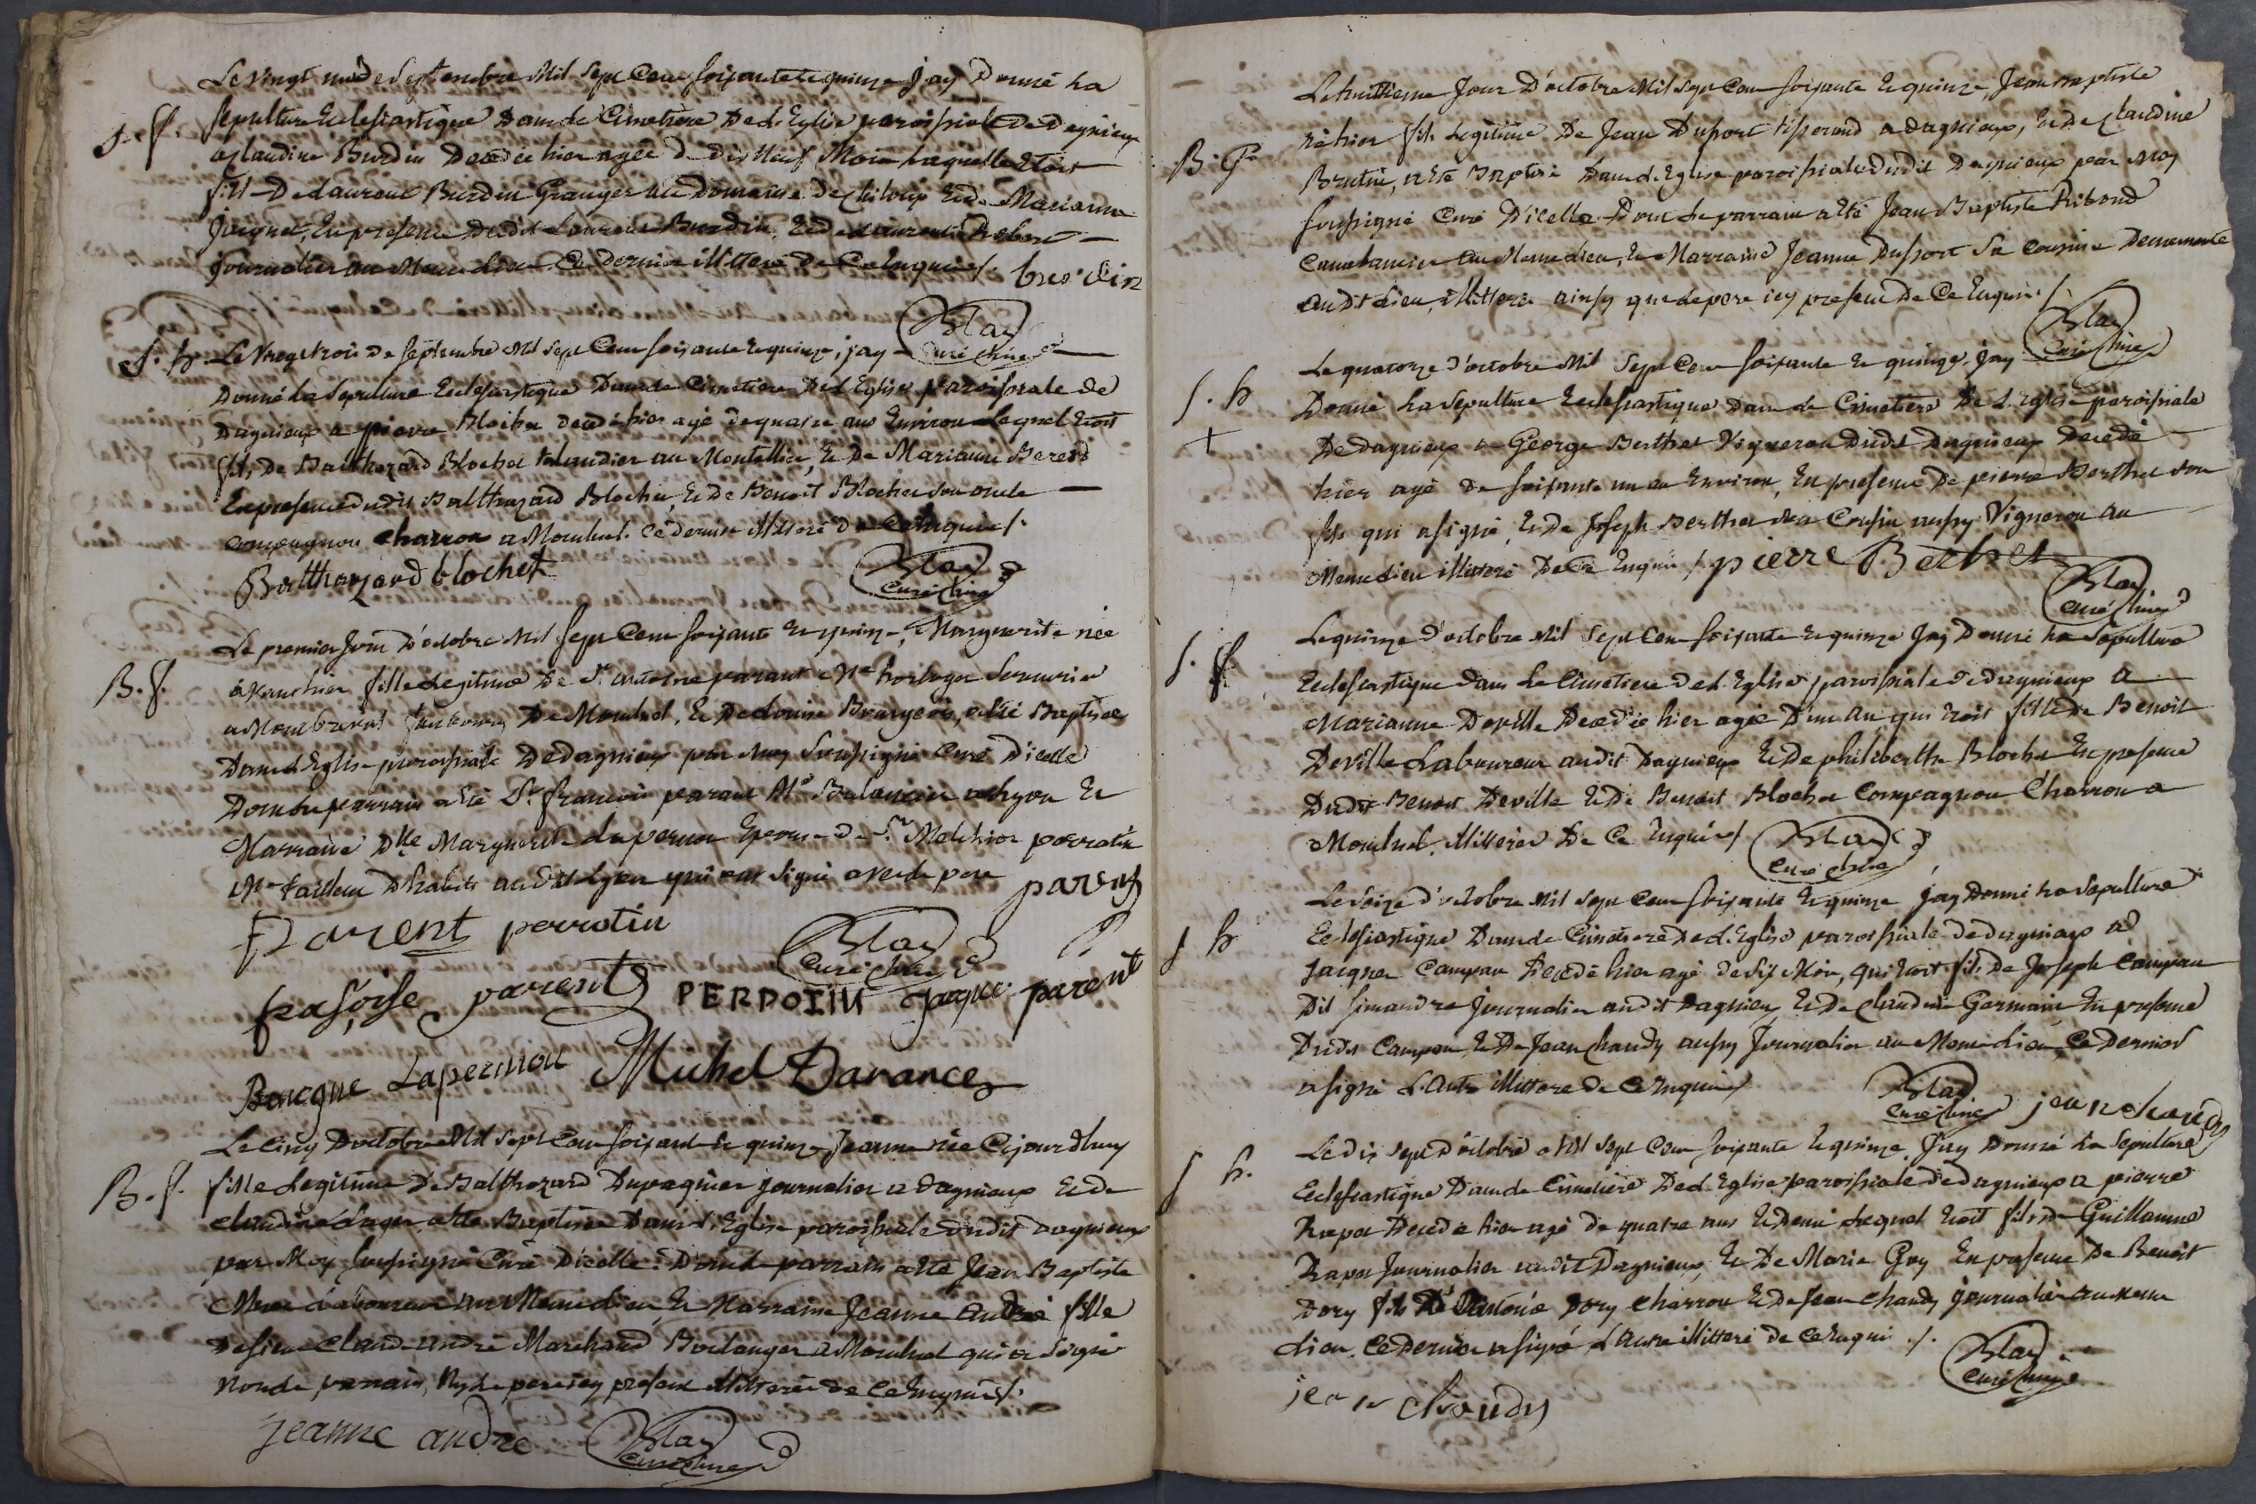 Le vingt un de Septembre Mil Sept Cent soixante et quinze j'ay Donné La
S. f. sepulture Eclesiastique Dans le Cimetiere De d. Eglise paroissiale De Dagnieux
a Claudine Burdin Decedée hier agée De dix Neuf Mois Laquelle Etoit
fille De Laurent Burdin Granger au Domaine De Chiloup Et de Marianne
Juignet, En presence Dudit Laurent Burdin, Et de Laurent Robert
journalier au Meme Lieu Ce Dernier illittere De Ce Enquis /. burdin
Blay
Curé
S. h. Le Vingt trois De Septembre Mil Sept Cent soixante Et quinze, j'ay
Donné La Sepulture Eclesiastique Dans le Cimetiere De d. Eglise paroissiale de
Dagnieux a pierre Blochet decedé hier agé de quatre ans Environ Lequel Etoit
fils De Balthazard Blochet taillandier au Montellier, Et De Marianne
En presence dudit Balthazard Blochet, Et De Benoit Blochet Son oncle
compagnon charron a Montluel. Ce dernier illiteré De Ce Enquis /.
Baltthazard blochet
Blay
Curé
Le premier Jour D'octobre Mil Sept Cent soixante Et quinze, Marguerite née
B. f. avant hier fille Legitime De Sr. Antoine parant Me horloger Serrurier
a Montluel De Montluel, Et De Louise Bourgeois, a Eté Baptisée
Dans L'Eglise paroissiale De Dagnieux par Moy Soussigné Curé D'icelle
Dont Le parrain a Eté Sr. francois parant Me Balancier a Lyon Et
Marraine Dlle Marguerite Laperrou Epouse de Sr. Melchior perrotin
Me tailleur D'habits audit Lyon qui ont Signé avec Le pere parent
Parent perrotin
Blay
Curé
frasoise parent PERROTIN Jaque parent
Baucque Laperrou Michel Davance
Le Cinq D'octobre Mil Sept Cent soixante Et quinze Jeanne née Cejourdhuy
B. f. fille Legitime De Balthazard Dupaquier journalier a Dagnieux Et De
Claudine a Eté Baptisée Dans L'Eglise paroissiale dudit Dagnieux
par Moy Soussigné Curé D'icelle. Dont Le parrain a Eté Jean Baptiste
Laboureur au Meme Lieu, Et Marraine Jeanne André fille
De sieur Claude André Marchand Boulanger a Montluel qui a Signé
Non Le parrain, Ny Le pere icy present illiteres de Ce Enquis /.
jeanne andre
Blay
Curé
Le huittieme Jour D'octobre Mil Sept Cent soixante Et quinze, Jean Baptiste
B. G. né hier fils Legitime De Jean Duport tisserand a Dagnieux, Et De Claudine
a Eté Baptisé Dans L'Eglise paroissiale dudit Dagnieux par Moy
Soussigné Curé D'icelle. Dont Le parrain a Eté Jean Baptiste Ribond
au Meme Lieu, Et Marraine Jeanne Duport Sa Cousine Demeurante
audit Lieu, illitteres ainsy que Le pere icy present De Ce Enquis /.
Blay
Curé
Le quatorze D'octobre Mil Sept Cent soixante Et quinze, j'ay
S. h. Donné La Sepulture Eclesiastique Dans Le Cimetiere De L'Eglise paroissiale
+ De Dagnieux a George Berthet Vigneron Dudit Dagnieux Decedé
hier agé De soixante un an Environ, En presence De pierre Berthet son
fils qui a signé, Et De Joseph Berthet Son Cousin aussy Vigneron au
Meme Lieu illitteré De Ce Enquis /. pierre Berthet
Blay
Curé
Le quinze D'octobre Mil Sept Cent soixante Et quinze J'ay Donné La Sepulture
S. f. Eclesiastique Dans Le Cimetiere De d. Eglise paroissiale De Dagnieux a
Marianne Deville Decedée hier agée D'un An qui Etoit fille De Benoit
Deville Laboureur audit Dagnieux Et De philiberthe Blochet En presence
Dudit Benoit Deville Et De Benoit Blochet Compagnon Charron a
Montluel. illiteres De Ce Enquis /
Blay
Curé
Le seize D'octobre Mil Sept Cent soixante Et quinze j'ay Donné La Sepulture
S. h Eclesiastique Dans Le Cimetiere De d. Eglise paroissiale De Dagnieux a
Jacques Campan Decedé hier agé de Six Mois, qui Etoit fils De Joseph Campan
Dit Simandre Journalier audit Dagnieux Et De Claudine Germain En presence
Dudit Campan, Et De Jean Chaudy aussy Journalier au Meme Lieu, Ce Dernier
a signé L'autre illittere De Ce Enquis /
Blay
Curé
jean chaudy
Le dix Sept D'octobre Mil Sept Cent soixante Et quinze J'ay Donné La Sepulture
S. h. Eclesiastique Dans Le Cimetiere De d. Eglise paroissiale De Dagnieux a pierre
Rapet Decedé hier agé De quatre ans Et Demi Lequel Etoit fils De Guillaume
Rapet Journalier audit Dagnieux, Et De Marie Guy En presence De Benoit
Dory fils D'Antoine Dory Charron Et De Jean Chaudy journalier au Meme
Lieu. Ce Dernier a signé L'autre illitteré De Ce Enquis /.
Blay
Curé
jean chaudy